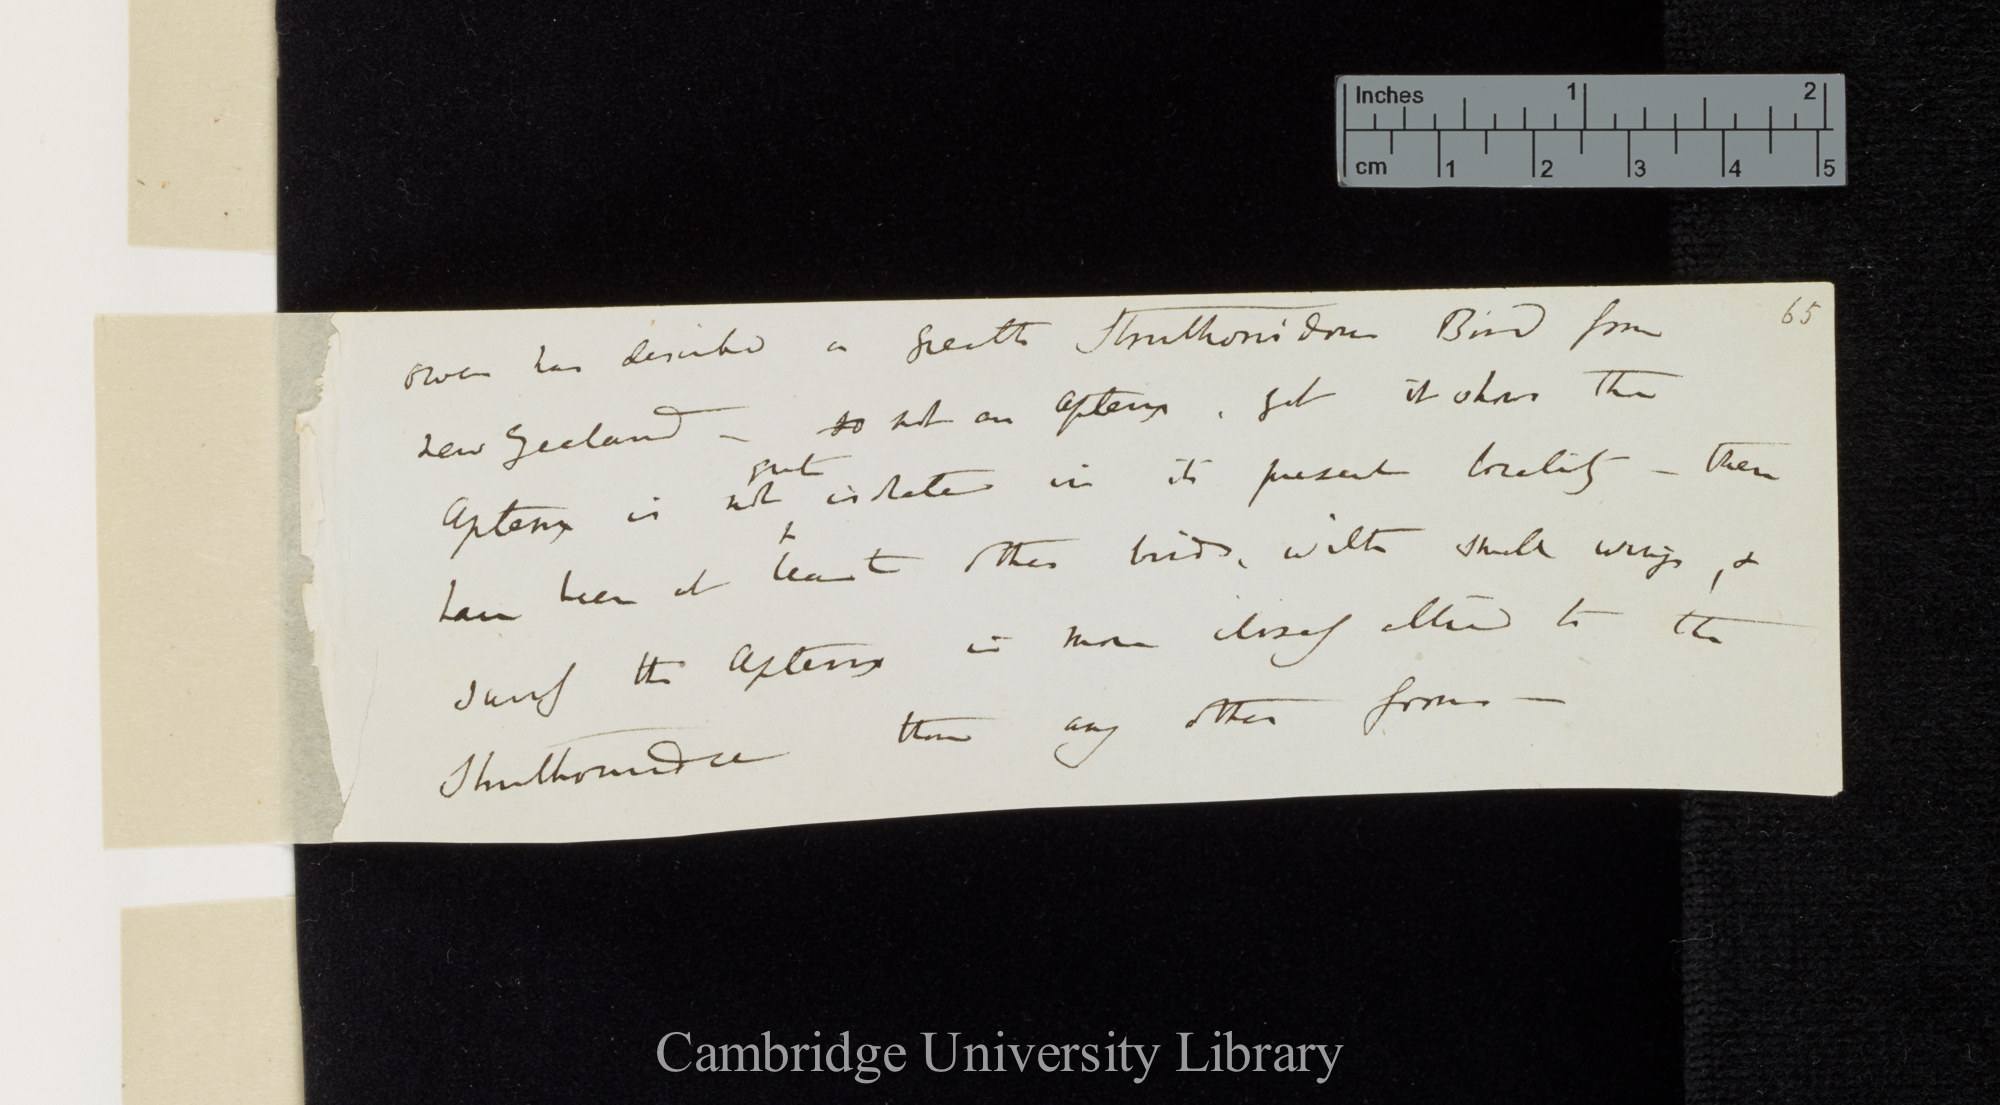 Inches 1 2
cm 1 2 3 4 5
65
Owen has described a Struthonidous Bird from
New Zealand — so not an Apteryx, yet it shows the
quite
Apteryx is not isolated in its present locality — there
have been at least other birds, with small wings, &
surely the Apteryx is more closely allied to the
Struthonidae than any other forms —
Cambridge University Library